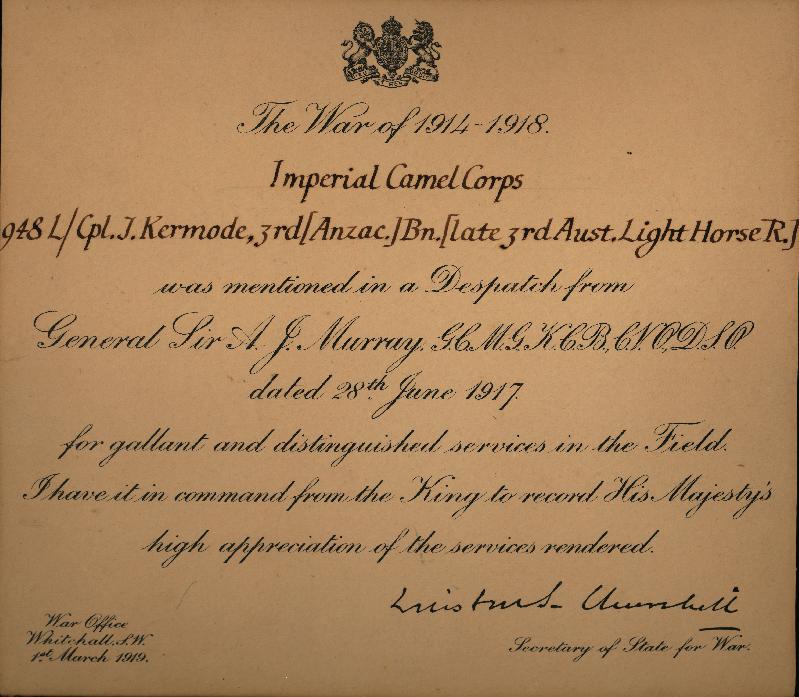 The War of 1914-1918.
Imperial Camel Corps
948 L/Cpl. J. Kermode, 3rd [Anzac.] Bn. [late 3rd Aust. Light Horse R.]
was mentioned in a Despatch from
General Sir A. J. Murray, G.C.M.G., K.C.B., C.V.O., D.S.O.
dated 28th June 1917.
for gallant and distinguished services in the Field.
I have it in command from the King to record His Majesty's
high appreciation of the services rendered.
Winston S. Churchill
Secretary of State for War.
War Office
Whitehall, S.W.
1st March 1919.